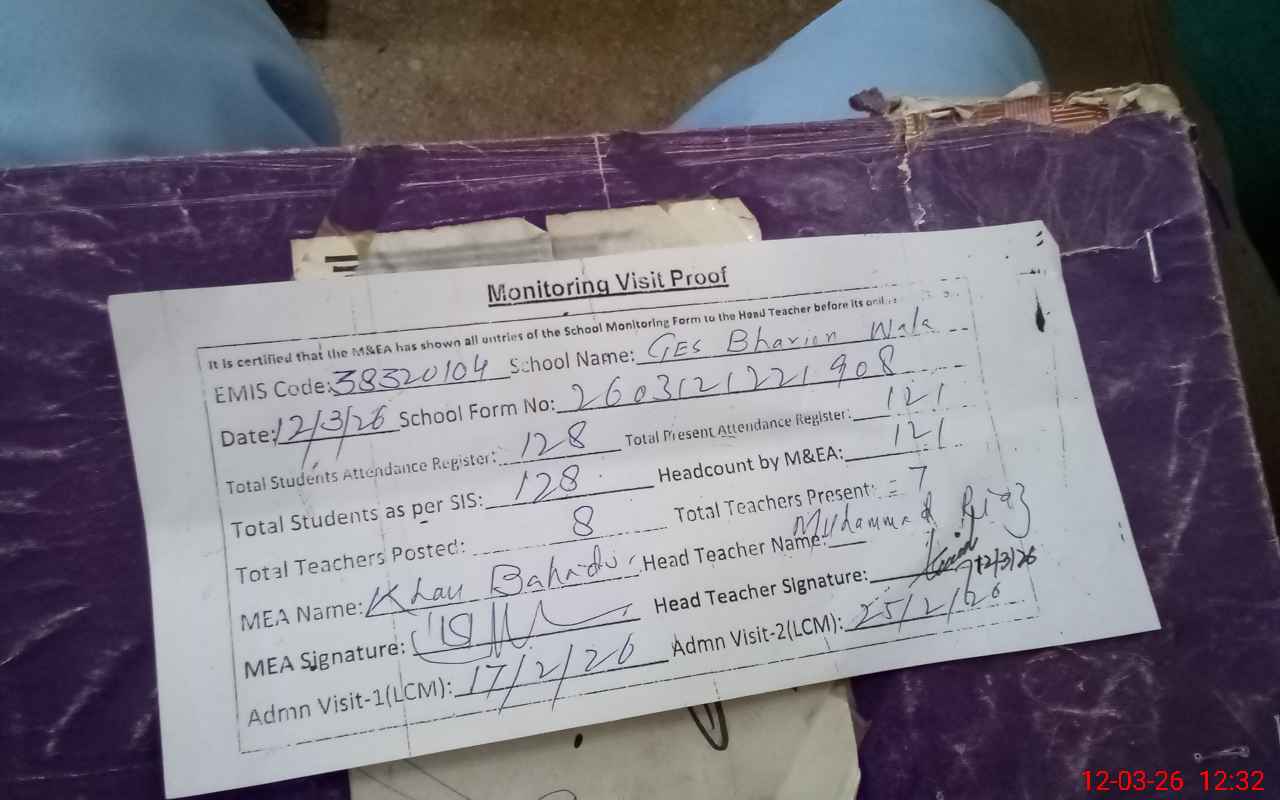 Monitoring Visit Proof
It is certified that the M&EA has shown all entries of the School Monitoring Form to the Head Teacher before its
EMIS Code: 38320104 School Name: GES Bharion Wala
Date: 12/3/26 School Form No: 2603121221908
Total Students Attendance Register: 128 Total Present Attendance Register: 121
Total Students as per SIS: 128 Headcount by M&EA: 121
Total Teachers Posted: 8 Total Teachers Present: = 7
MEA Name: Khan Bahadur Head Teacher Name: Muhammad Riaz
MEA Signature: Head Teacher Signature: 12/3/26
Admn Visit-1(LCM): 17/2/26 Admn Visit-2(LCM): 25/2/26
12-03-26 12:32